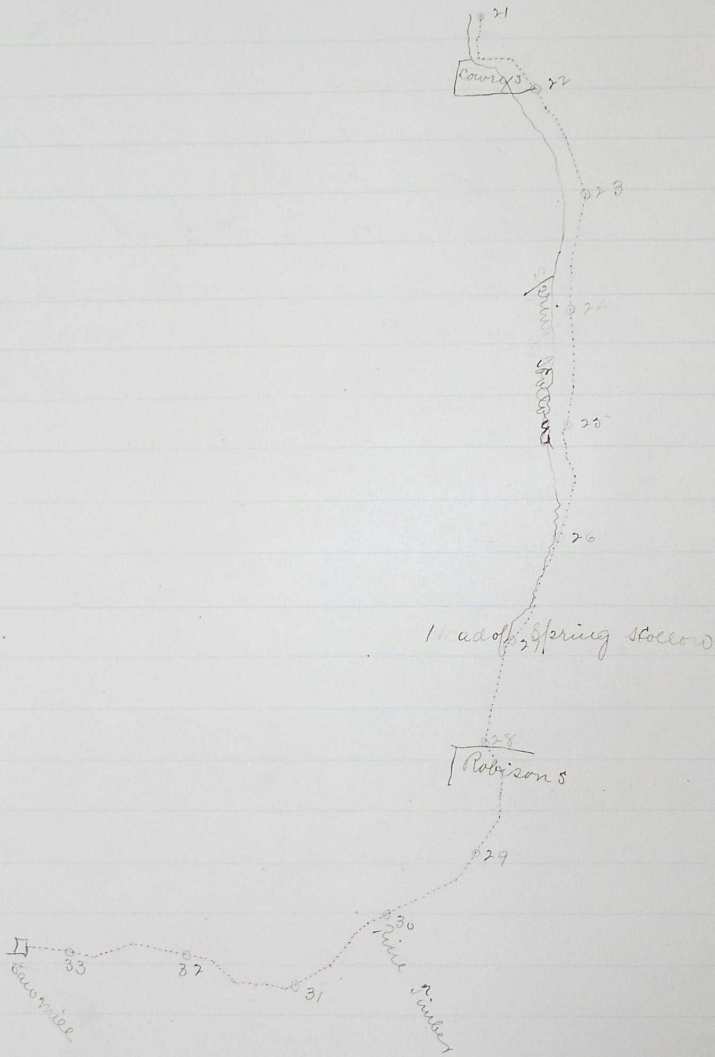 21
Cowry's
22
23
Spring Hollow
24
25
26
Head of Spring Hollow
27
28
Robison s
29
30
Pine Timber
31
32
33
Sawmill